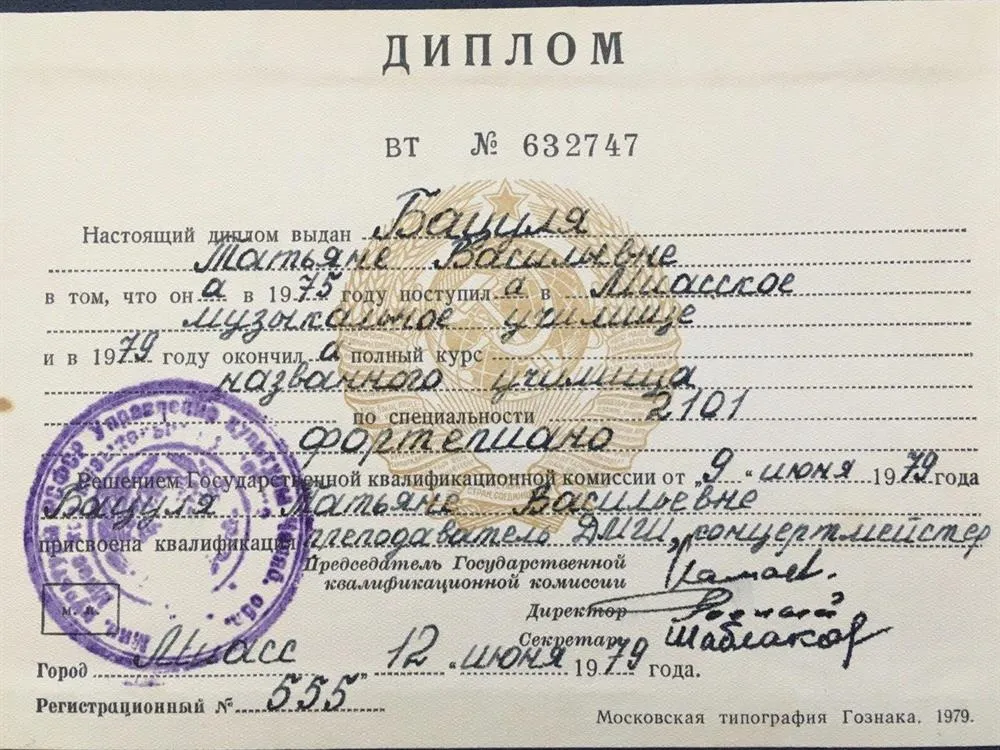 ДИПЛОМ
ВТ № 632747
Настоящий диплом выдан Бацуля
Татьяне Васильевне
в том, что он а в 1975 году поступил а в Миасское
музыкальное училище
и в 1979 году окончил а полный курс
названного училища
по специальности 2101
фортепиано
Решением Государственной квалификационной комиссии от „9“ июня 1979 года
Бацуля Татьяне Васильевне
присвоена квалификация преподаватель ДМШ, концертмейстер
Председатель Государственной
квалификационной комиссии
Директор
Секретарь Шаблаков
М. П.
Город Миасс „12“ июня 1979 года.
Регистрационный № 555
Московская типография Гознака. 1979.
РСФСР Управление культуры обл.